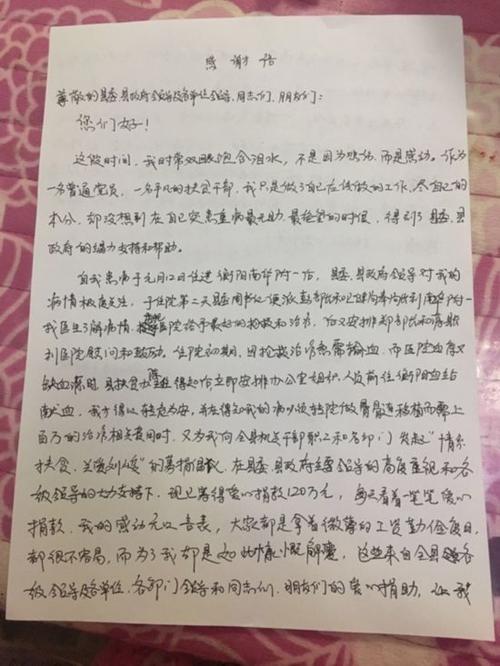 感谢信
尊敬的县委、县政府领导及各单位领导、同志们、朋友们:
您们好!
这段时间,我时常双眼饱含泪水,不是因为悲伤,而是感动。作为
一名普通党员,一名平凡的扶贫干部,我只是做了自己应该做的工作,尽自己的
本分,却没想到在自己突患重病最无助、最绝望的时候,得到了县委、县
政府的鼎力支持和帮助。
自我患病于元月12日住进衡阳南华附一后,县委、县政府领导对我的
病情极度关注,于住院第二天县委周书记便派
我医生了解病情,医院给予最好的抢救和治疗,后又安排
到医院慰问和鼓励。住院初期,因抢救治疗急需输血,而医院血库又
缺血滞后,县扶贫办得知后,立即安排办公室组织人员前往衡阳血站
献血,我才得以转危为安,并在得知我的病必须转院做骨髓移植而需上
百万的治疗相关费用时,又为我向全县机关干部职工和各部门发起“情系
扶贫、关爱”的募捐倡议,在县委县政府主要领导的高度重视和各
级领导的大力支持下,现已筹得爱心捐款120万元,每天看着一笔笔爱心
捐款,我的感动无以言表,大家都是拿着微薄的工资勤俭度日,
都很不容易,而为了我却是如此慷慨解囊,这些来自全县各
级领导及各单位、各部门领导和同志们、朋友们的爱心捐助,让我